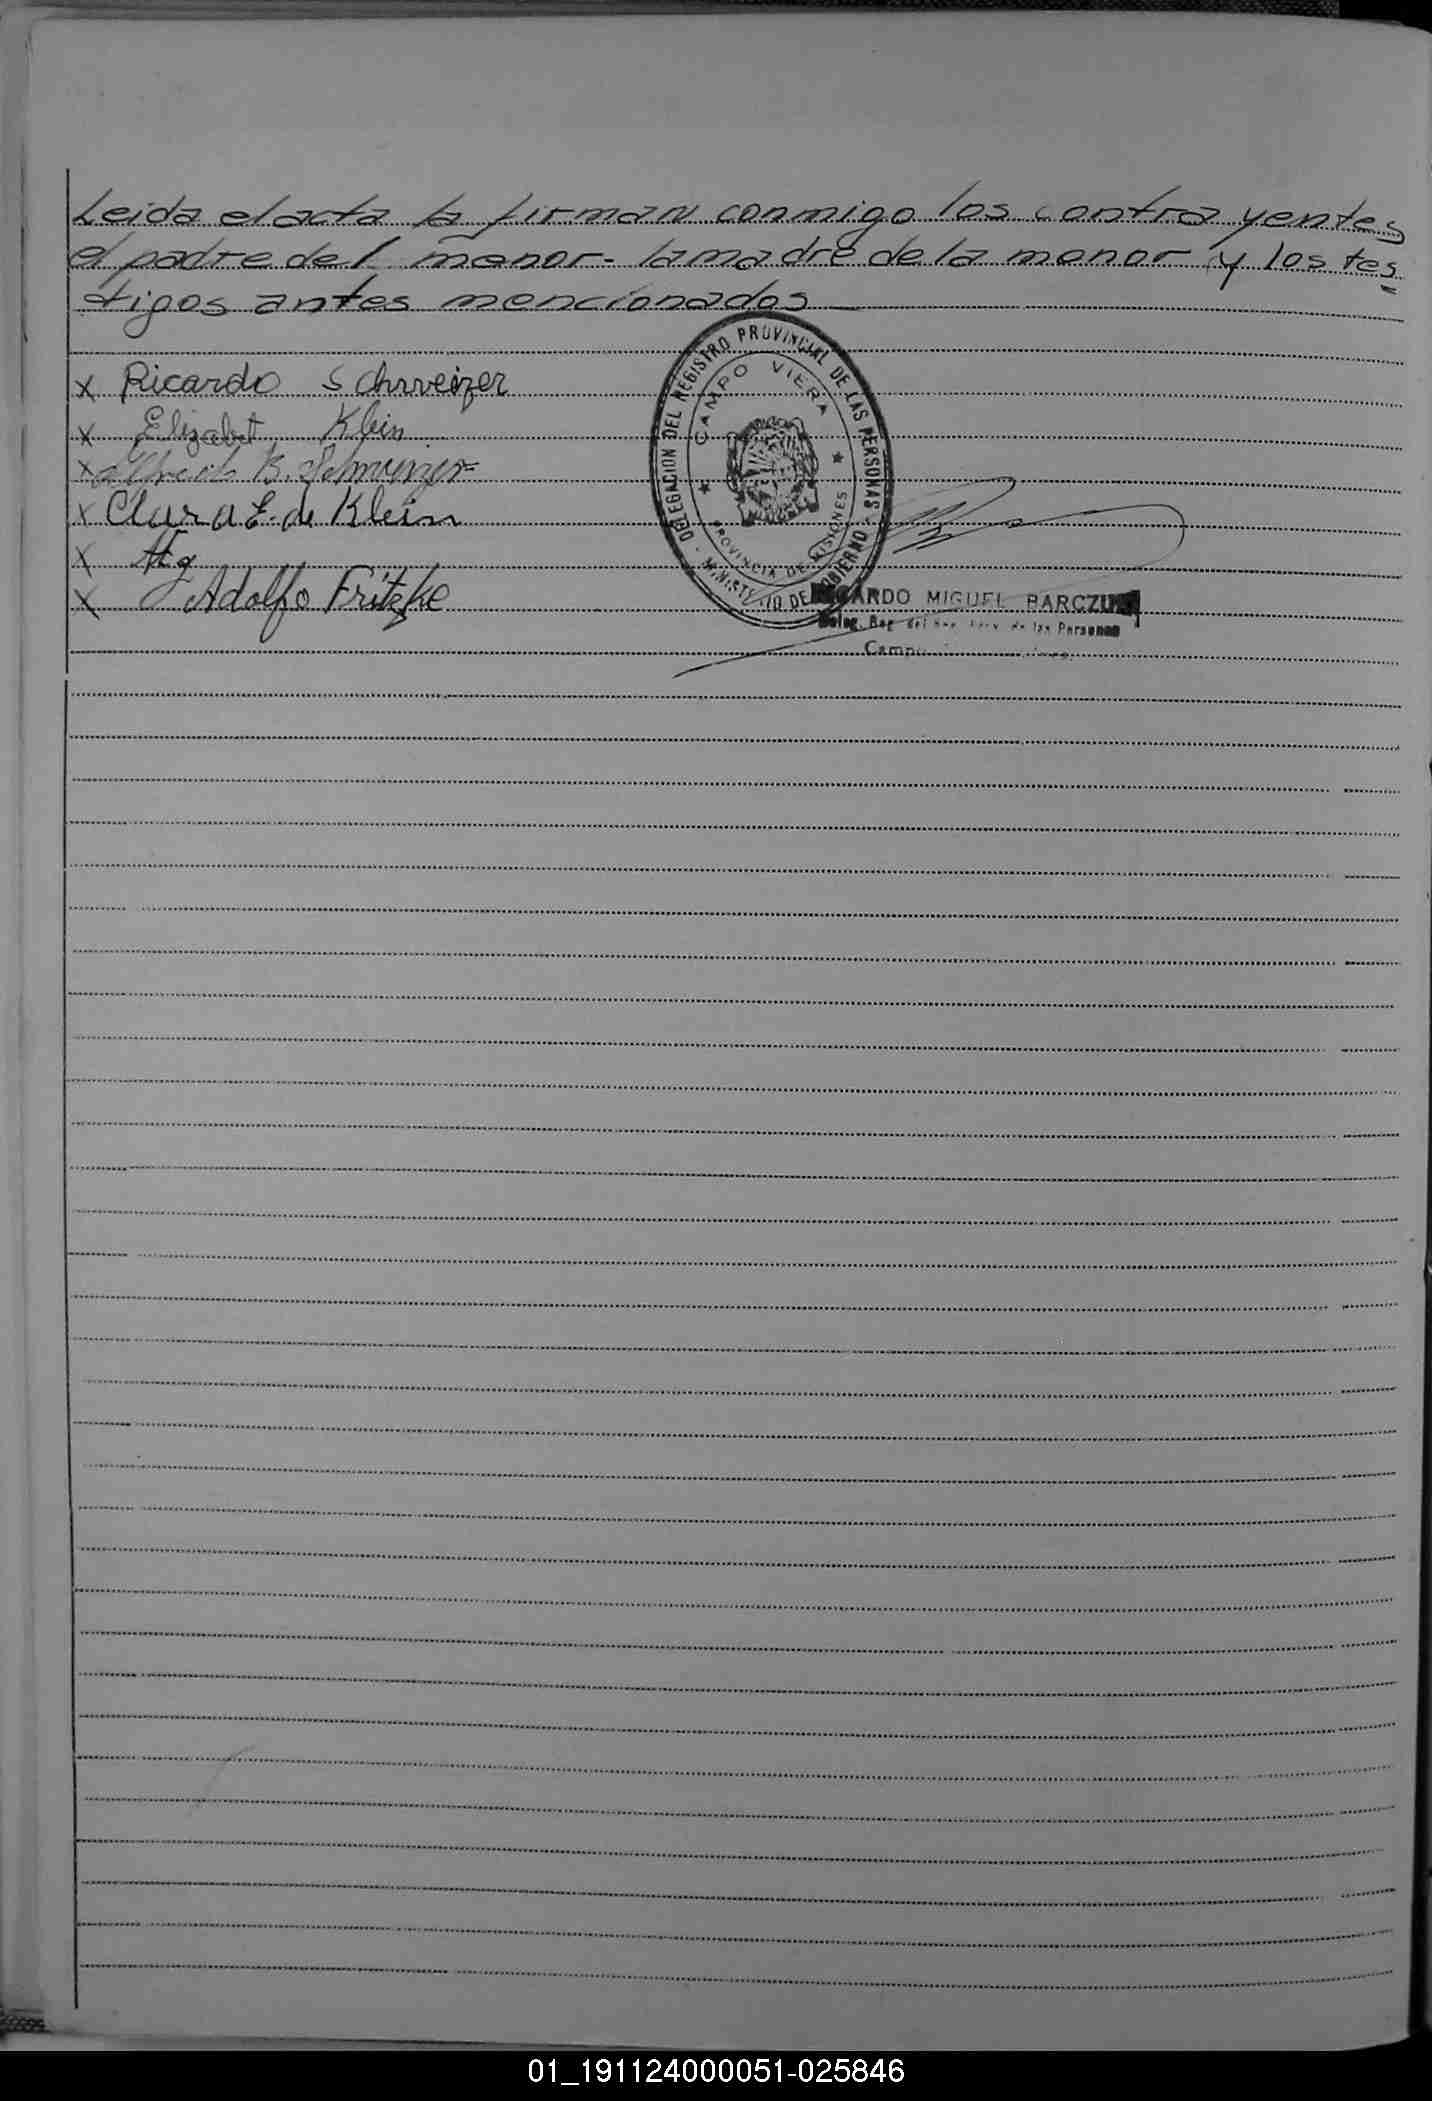 Leida el acta la firman conmigo los contrayentes
el padre del menor - la madre de la menor y los tes
tigos antes mencionados
x Ricardo Schweizer
x Elizabet Klein
x Alfredo B. Schweizer
x Clara E. de Klein
x
x Adolfo Fritzke
DELEGACION DEL REGISTRO PROVINCIAL DE LAS PERSONAS
MINISTERIO DE GOBIERNO
CAMPO VIERA
PROVINCIA DE MISIONES
RICARDO MIGUEL BARCZUK
Deleg. Reg. del Reg. Prov. de las Personas
Campo
01_191124000051-025846